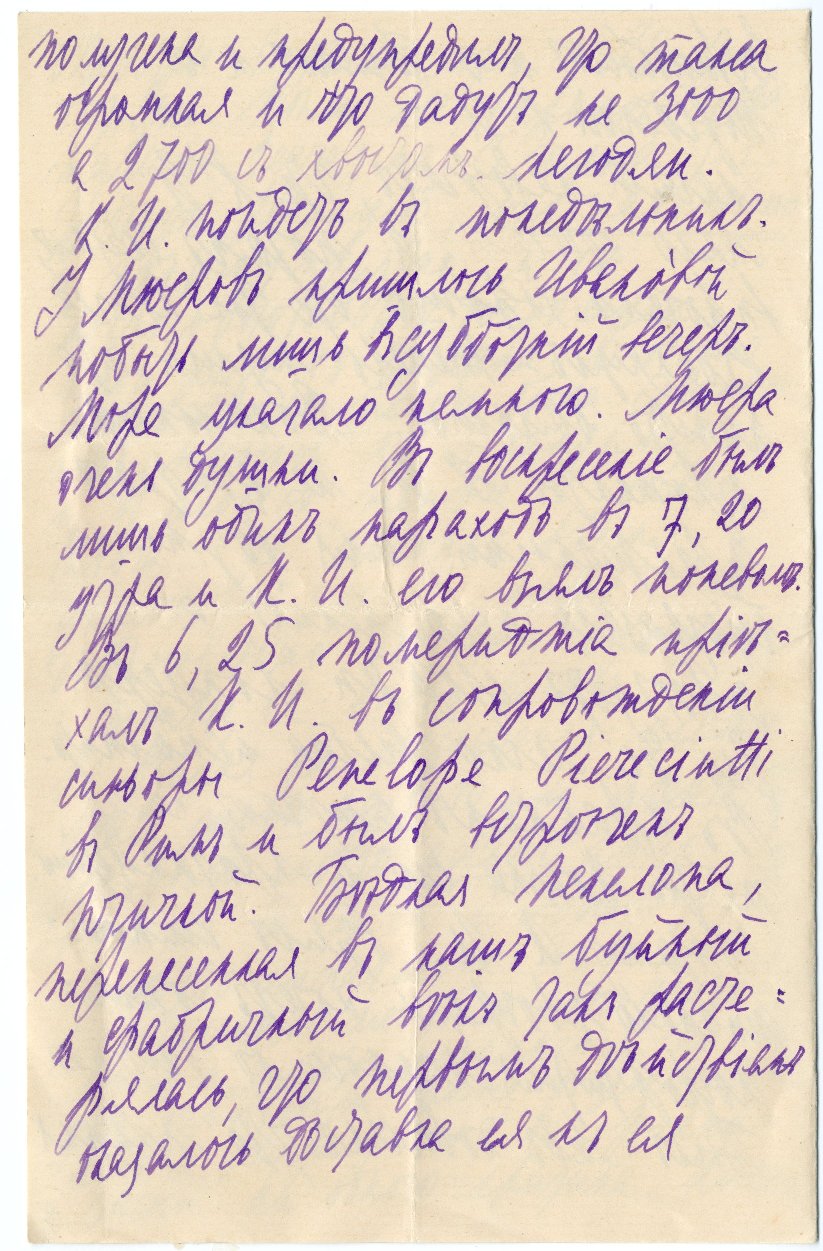 получена и предупредилъ, что такса
огромная и что дадутъ не 3000
а 2700 съ хвостомъ. негодяи.
К. И. пойдетъ въ понедѣльникъ.
У Мюеровъ пришлось Ивановой
побыть лишь въ субботній вечеръ.
Море укачало немного. Мюера
очень душки. Въ воскресеніе былъ
лишь одинъ пароходъ въ 7,20
утра и К. И. его взялъ поневолѣ.
Въ 6,25 померидіа пріѣ=
халъ К. И. въ сопровожденіи
синьоры Penelope
въ Римъ и былъ встрѣченъ
птичкой. Бѣдная Пенелопа,
перенесенная въ нашъ буйный
и фабричный вѣкъ такъ расте=
рялась, что первымъ дѣйствіемъ
оказалось доставка ея къ ея